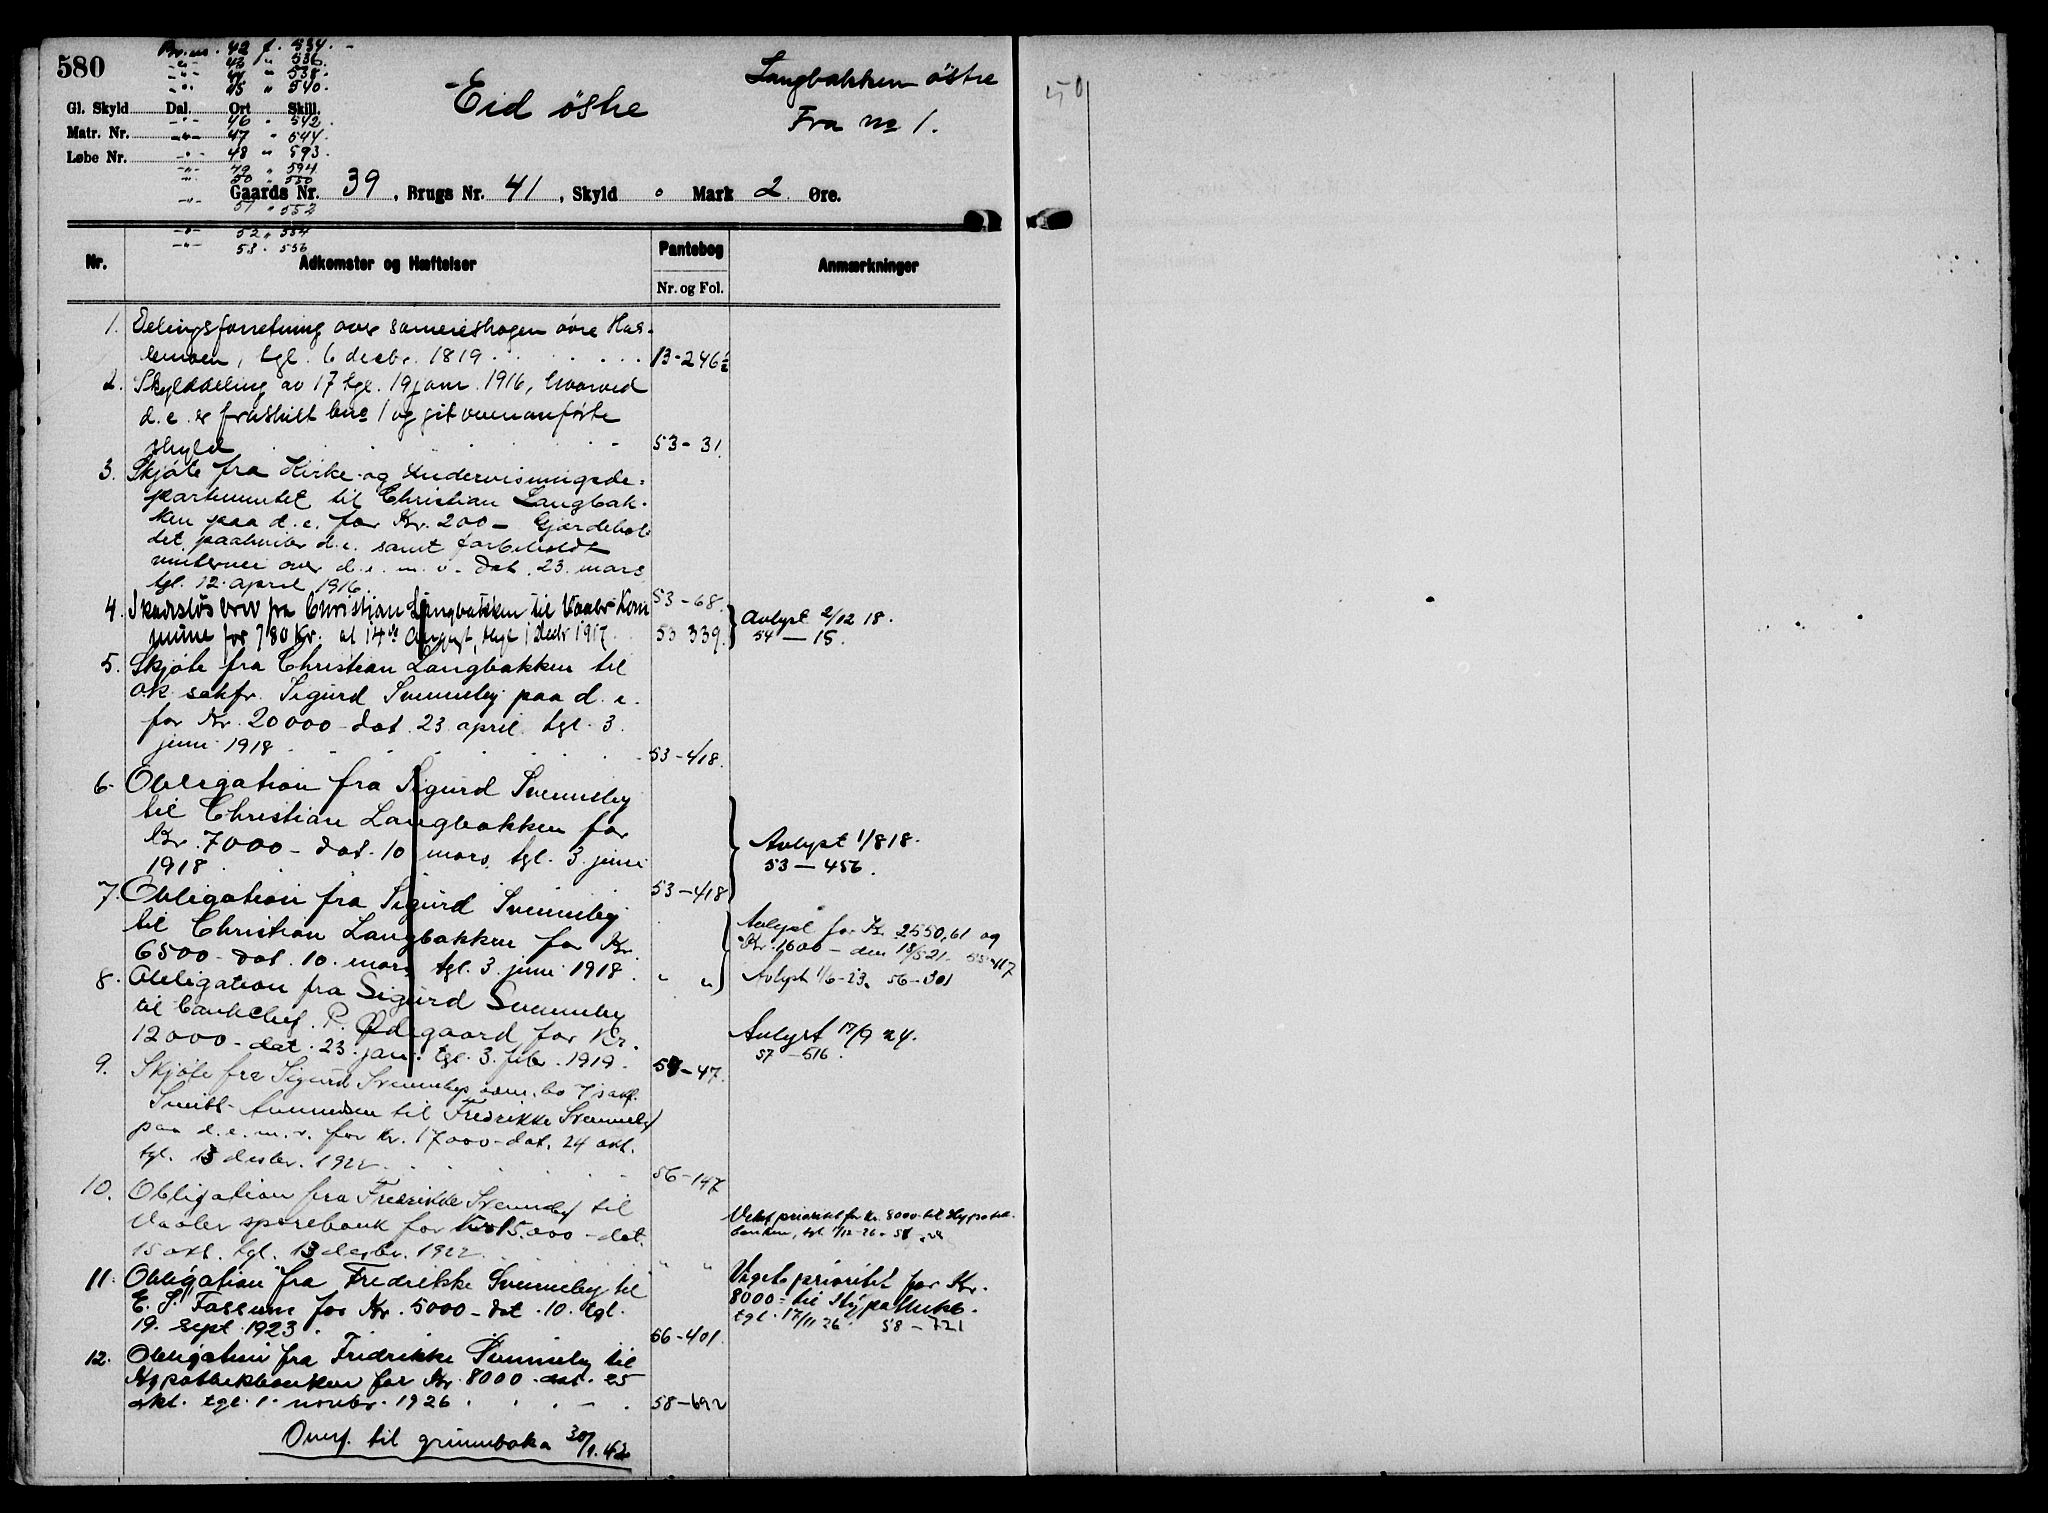 580
Br.nr. 42 f. 534.
-"- 43 " 536.
-"- 44 " 538.
-"- 45 " 540.
Gl. Skyld Dal. Ort Skill.
-"- 46 " 542.
Matr. Nr. -"- 47 " 544.
Løbe Nr. -"- 48 " 593.
-"- 49 " 594
-"- 50 " 550
Eid østre
Langbakken østre
Fra no 1.
Gaards Nr. 39, Brugs Nr. 41, Skyld 0 Mark 2 Øre.
-"- 51 " 552
-"- 52 " 554
-"- 53 " 556
Nr. Adkomster og Hæftelser Pantebog Nr. og Fol. Anmærkninger
1. Delingsforretning over sameieskogen øvre Has-
lemoen, tgl. 6 decbr. 1819 13-246½
2. Skylddeling av 17 tgl. 19 janr. 1916, hvorved
d.e. er fraskilt bno 1 og git ovenanførte
skyld 53-31.
3. Skjøte fra Kirke- og Undervisningsde-
partementet til Christian Langbak-
ken paa d.e. for Kr. 200- Gjærdehol-
det paahviler d.e. samt forbeholdt
vintervei over d.e. m.v. Dat. 23. mars
tgl. 12. april 1916 53-68.
4. Skadesløsbrev fra Christian Langbakken til Vaaler Kom
mune for 780 Kr. af 14de August, thgl 1 Decbr 1917. 53 339. Avlyst 2/12 18.
54-15.
5. Skjøte fra Christian Langbakken til
o.r. sakfr. Sigurd Svenneby paa d.e.
for Kr. 20000- Dat. 23 april tgl. 3.
juni 1918 53-418.
6. Obligation fra Sigurd Svenneby
til Christian Langbakken for
Kr. 7000- Dat. 10 mars tgl. 3. juni
1918. 53-418 Avlyst 1/8 18.
53-456.
7. Obligation fra Sigurd Svenneby
til Christian Langbakken for Kr.
6500- dat. 10. mars tgl. 3. juni 1918. " " Avlyst for Kr. 2550,61 og
Kr. 1600- den 18/5 21. 55-117
Avlyst 1/6-23. 56-301
8. Obligation fra Sigurd Svenneby
til bankchef P. Ødegaard for Kr.
12000- dat. 23. jan. tgl. 3. febr. 1919. 54-47. Avlyst 17/9 24.
57-516.
9. Skjøte fra Sigurd Svennebys bo v/ sakf.
til Fredrikke Svenneby
paa d.e. m.v. for Kr. 17000- dat. 24 okt.
tgl. 13 desbr. 1922 56-147
10. Obligation fra Fredrikke Svenneby til
Vaaler sparebank for Kr. 15.000- dat.
15 okt. tgl. 13 desbr. 1922 " " Veket prioritet for Kr. 8000 til Hypotek-
banken, tgl. 1/12-26. 58
11. Obligation fra Fredrikke Svenneby til
E. S. Fossum for Kr. 5000- dat. 10. tgl.
19. sept. 1923. 56-401. Veget prioritet for Kr.
8000- til Hypothekb.
tgl. 17/11 26. 58-721
12. Obligation fra Fredrikke Svenneby til
Hypothekbanken for Kr. 8000 dat. 25
okt. tgl. 1. novbr. 1926 58-692
Overf. til grunnboka 30/1.42